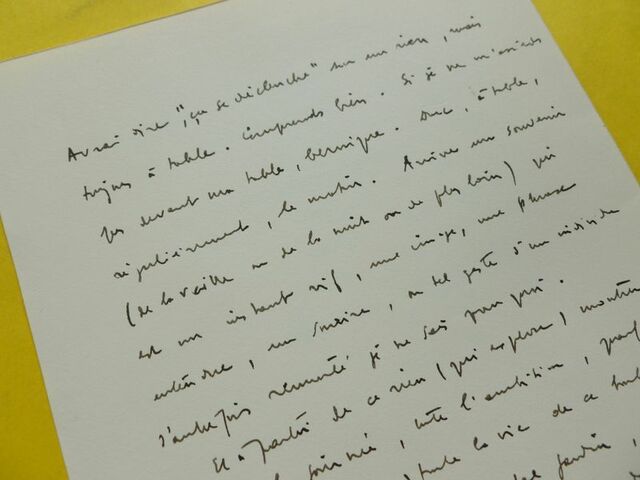 A vrai dire, "ça se déclenche" sur un rien, mais
toujours à table. Comprends bien. Si je ne m'assieds
pas devant ma table, bernique. Donc, à table,
régulièrement, le matin. Arrive un souvenir
(de la veille ou de la nuit ou de plus loin) qui
est un instant vif, une image, une phrase
entendue, un sourire, ou tel geste d'un
d'autrefois remonté je ne sais pourquoi.
Et à partir de ce rien (qui explose) montrer
soirée, toute l'ambition,
toute la vie de ce
jardin,